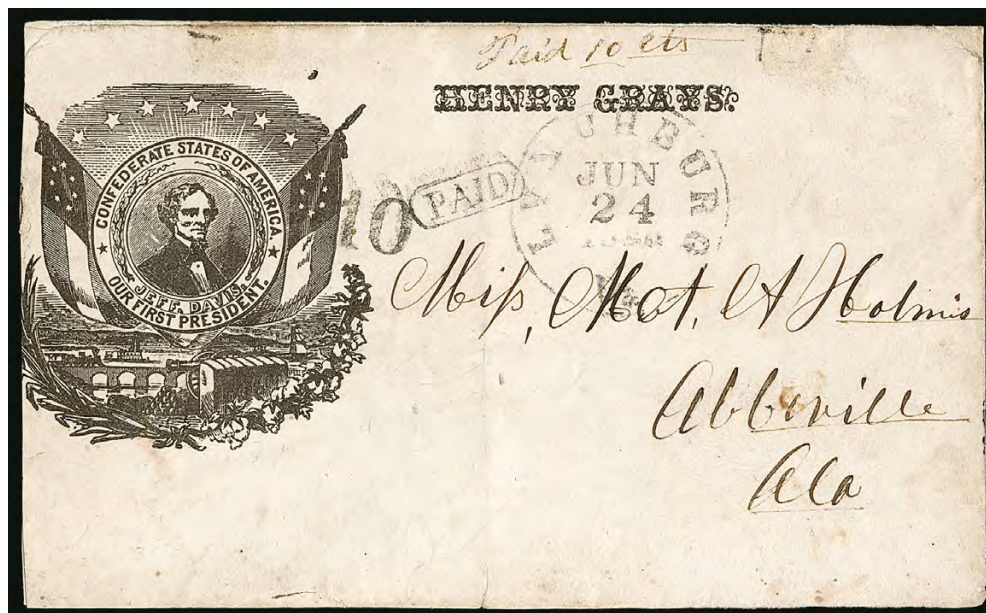 Paid 10 cts
HENRY GRAYS.
CONFEDERATE STATES OF AMERICA.
JEFF. DAVIS,
OUR FIRST PRESIDENT.
10
PAID
LYNCHBURG
JUN
24
Va.
Miss, Mat. A Holmes
Abbeville
Ala